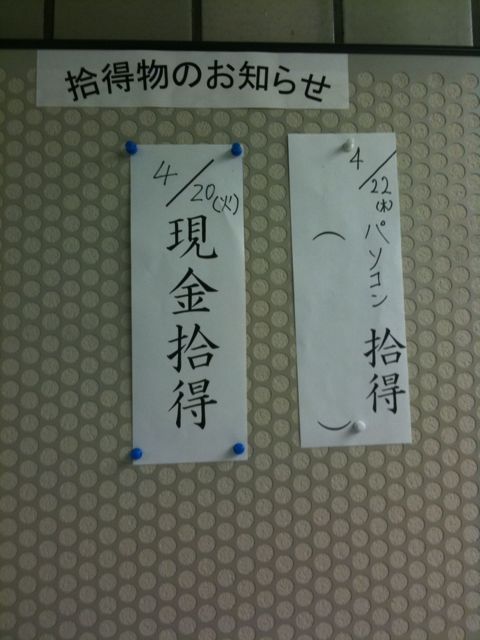 拾得物のお知らせ
4/22(木)パソコン 拾得
( )
4/20(火)
現金拾得